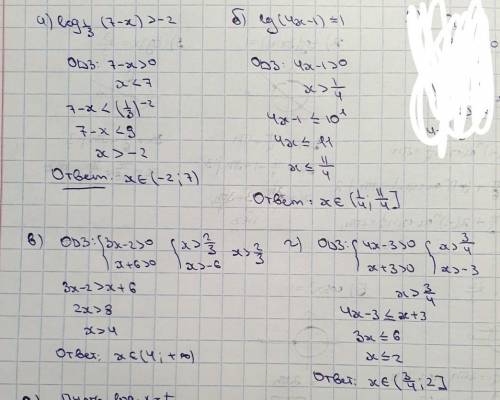 а) log 1/3 (7-x) > -2
ОДЗ: 7-x>0
x<7
7-x < (1/3)^-2
7-x < 9
x > -2
Ответ: x∈(-2; 7)
б) lg(4x-1) ≤ 1
ОДЗ: 4x-1>0
x > 1/4
4x-1 ≤ 10^1
4x ≤ 11
x ≤ 11/4
Ответ: x∈(1/4; 11/4]
в) ОДЗ: {3x-2>0 {x>2/3 x>2/3
x+6>0 x>-6
3x-2>x+6
2x>8
x>4
Ответ: x∈(4; +∞)
г) ОДЗ: {4x-3>0 {x>3/4
x+3>0 x>-3
x>3/4
4x-3 ≤ x+3
3x ≤ 6
x ≤ 2
Ответ: x∈(3/4; 2]